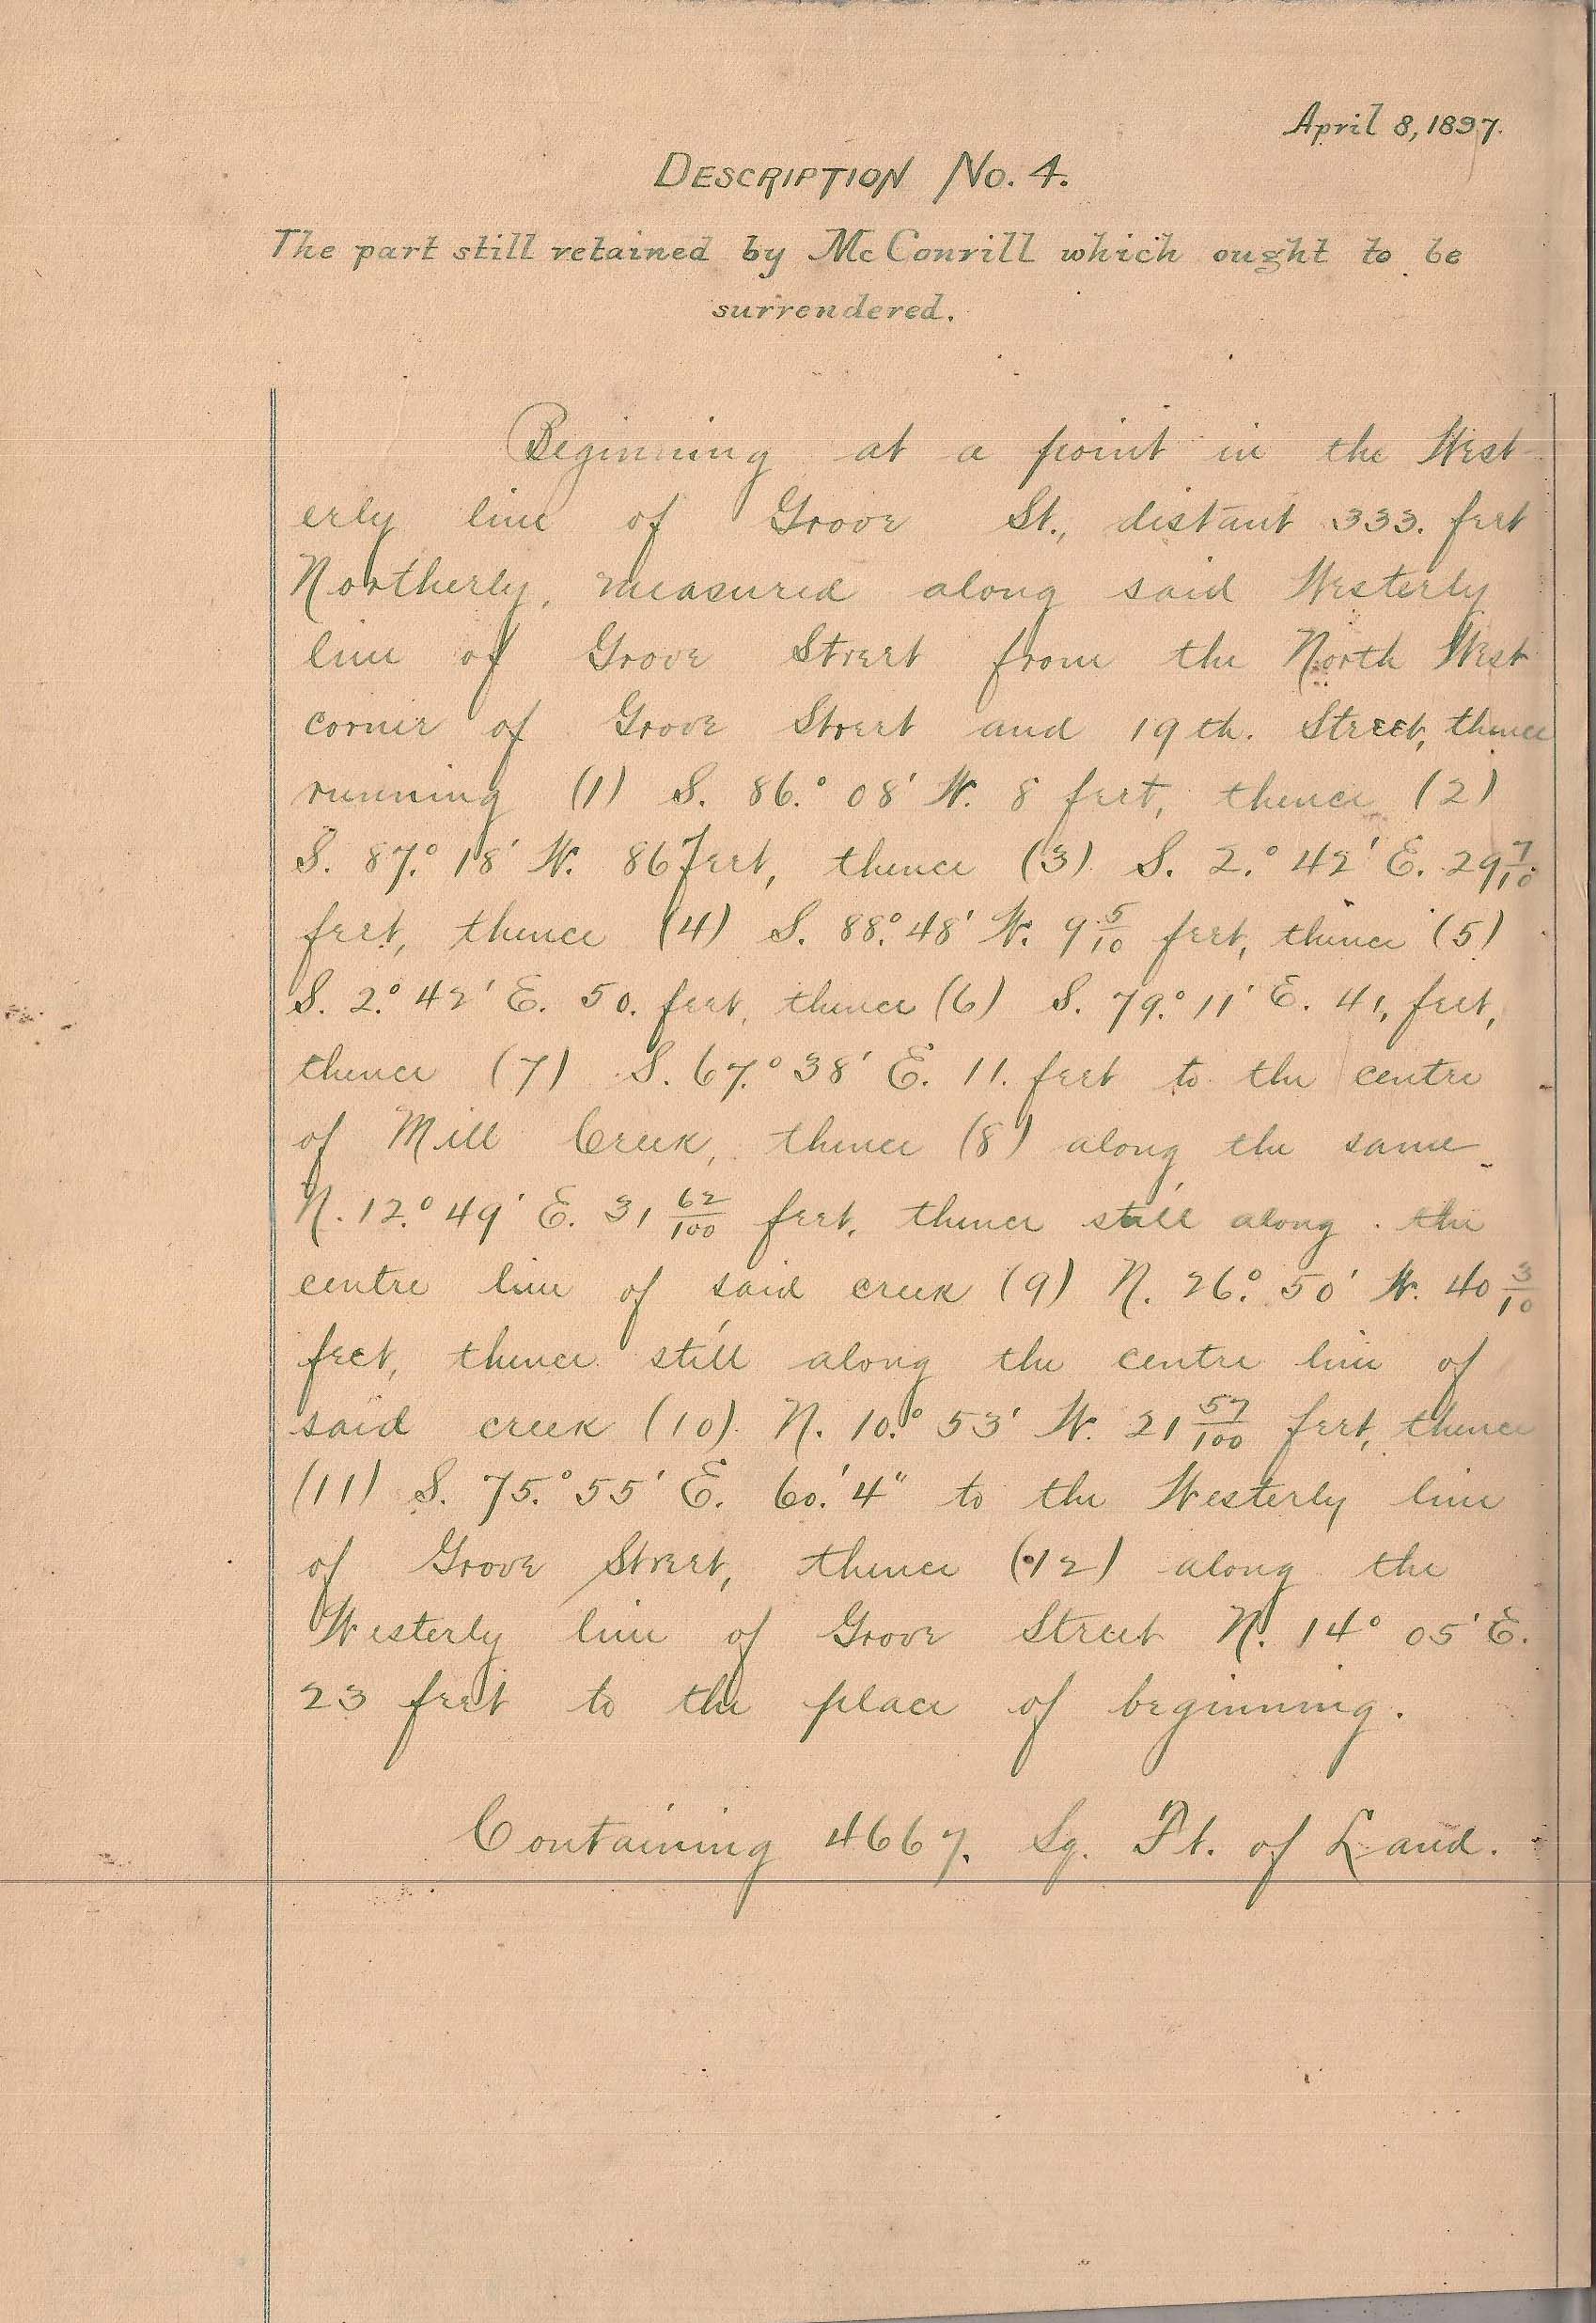 April 8, 1897.
DESCRIPTION No. 4.
The part still retained by McConvill which ought to be
surrendered.
Beginning at a point in the West-
erly line of Grove St., distant 333. feet
Northerly, measured along said Westerly
line of Grove Street from the North West
corner of Grove Street and 19th. Street, thence
running (1) S. 86.° 08' W. 8 feet, thence (2)
S. 87.° 18' W. 86 feet, thence (3) S. 2.° 42' E. 29 7/10
feet, thence (4) S. 88.° 48' W. 9 5/10 feet, thence (5)
S. 2.° 42' E. 50. feet, thence (6) S. 79.° 11' E. 41, feet,
thence (7) S. 67.° 38' E. 11. feet to the centre
of Mill Creek, thence (8) along the same
N. 12.° 49' E. 31 62/100 feet, thence still along the
centre line of said creek (9) N. 26.° 50' W. 40 3/10
feet, thence still along the centre line of
said creek (10) N. 10.° 53' W. 21 57/100 feet, thence
(11) S. 75.° 55' E. 60.' 4" to the Westerly line
of Grove Street, thence (12) along the
Westerly line of Grove Street N. 14° 05' E.
23 feet to the place of beginning.
Containing 4667. Sq. Ft. of Land.